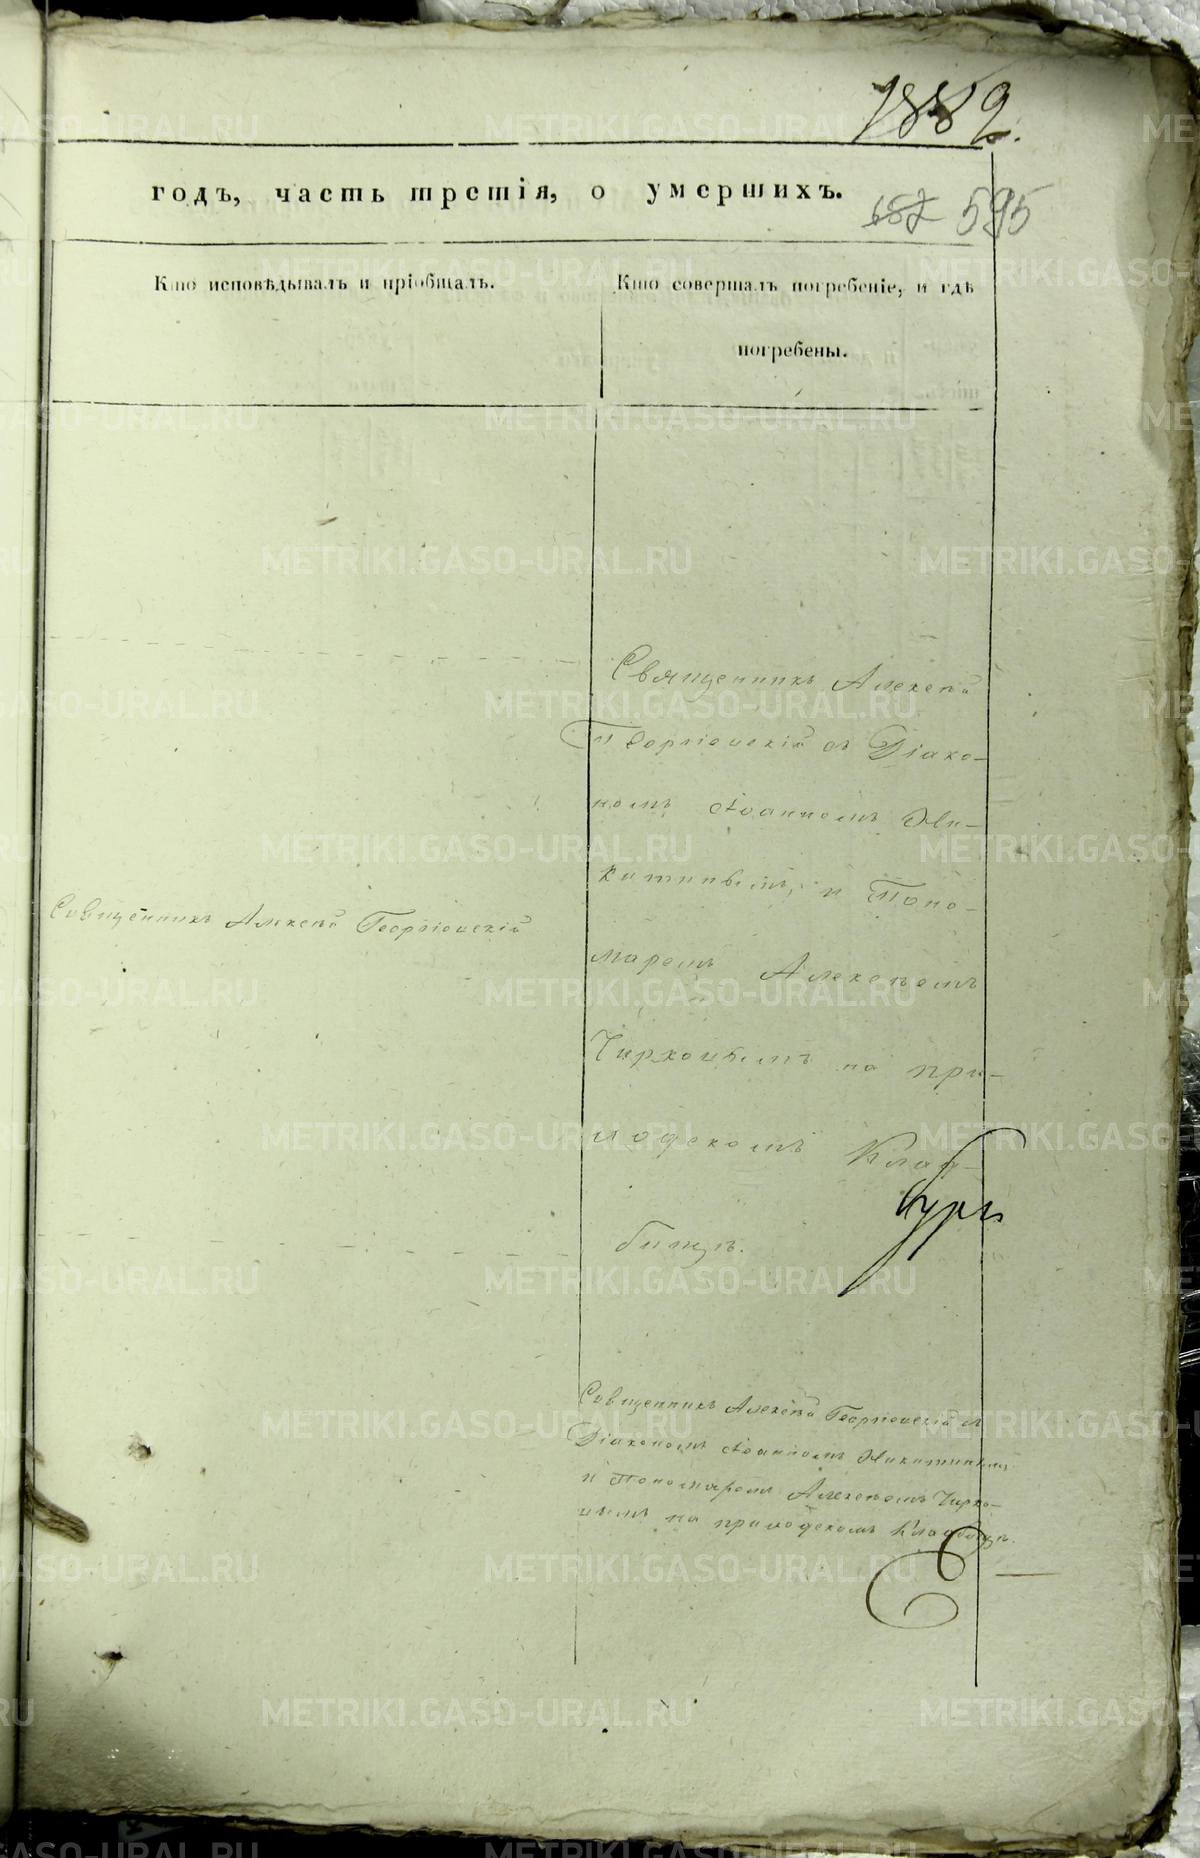 1882.
годъ, часть третія, о умершихъ.
687 595
Кто исповѣдывалъ и пріобщалъ.
Кто совершалъ погребеніе, и гдѣ
погребены.
Священникъ Алексѣй
Георгіевскій съ Діако-
номъ Іоанномъ Ни-
китинымъ, и Поно-
маремъ Алексѣемъ
Чирковымъ на при-
ходскомъ Клад-
бищѣ.
Священникъ Алексѣй Георгіевскій
Священникъ Алексѣй Георгіевскій съ
Діакономъ Іоанномъ Никитинымъ
и Пономаремъ Алексѣемъ Чирко-
вымъ на приходскомъ Кладбищѣ.
METRIKI.GASO-URAL.RU